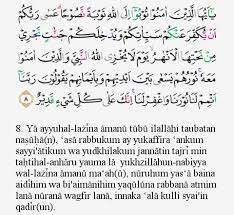 يٰٓاَيُّهَا الَّذِيْنَ اٰمَنُوْا تُوْبُوْٓا اِلَى اللّٰهِ تَوْبَةً نَّصُوْحًاۗ عَسٰى
رَبُّكُمْ اَنْ يُّكَفِّرَ عَنْكُمْ سَيِّاٰتِكُمْ وَيُدْخِلَكُمْ جَنّٰتٍ تَجْرِيْ
مِنْ تَحْتِهَا الْاَنْهٰرُۙ يَوْمَ لَا يُخْزِى اللّٰهُ النَّبِيَّ وَالَّذِيْنَ اٰمَنُوْا
مَعَهٗۚ نُوْرُهُمْ يَسْعٰى بَيْنَ اَيْدِيْهِمْ وَبِاَيْمَانِهِمْ يَقُوْلُوْنَ رَبَّنَآ
اَتْمِمْ لَنَا نُوْرَنَا وَاغْفِرْ لَنَاۚ اِنَّكَ عَلٰى كُلِّ شَيْءٍ قَدِيْرٌ ٨
8. Yā ayyuhal-lażīna āmanū tūbū ilallāhi taubatan
naṣūḥā(n), ‘asā rabbukum ay yukaffira ‘ankum
sayyi'ātikum wa yudkhilakum jannātin tajrī min
taḥtihal-anhāru yauma lā yukhzillāhun-nabiyya
wal-lażīna āmanū ma‘ah(ū), nūruhum yas‘ā baina
aidihim wa bi'aimānihim yaqūlūna rabbanā atmim
lanā nūranā wagfir lanā, innaka ‘alā kulli syai'in
qadīr(un).